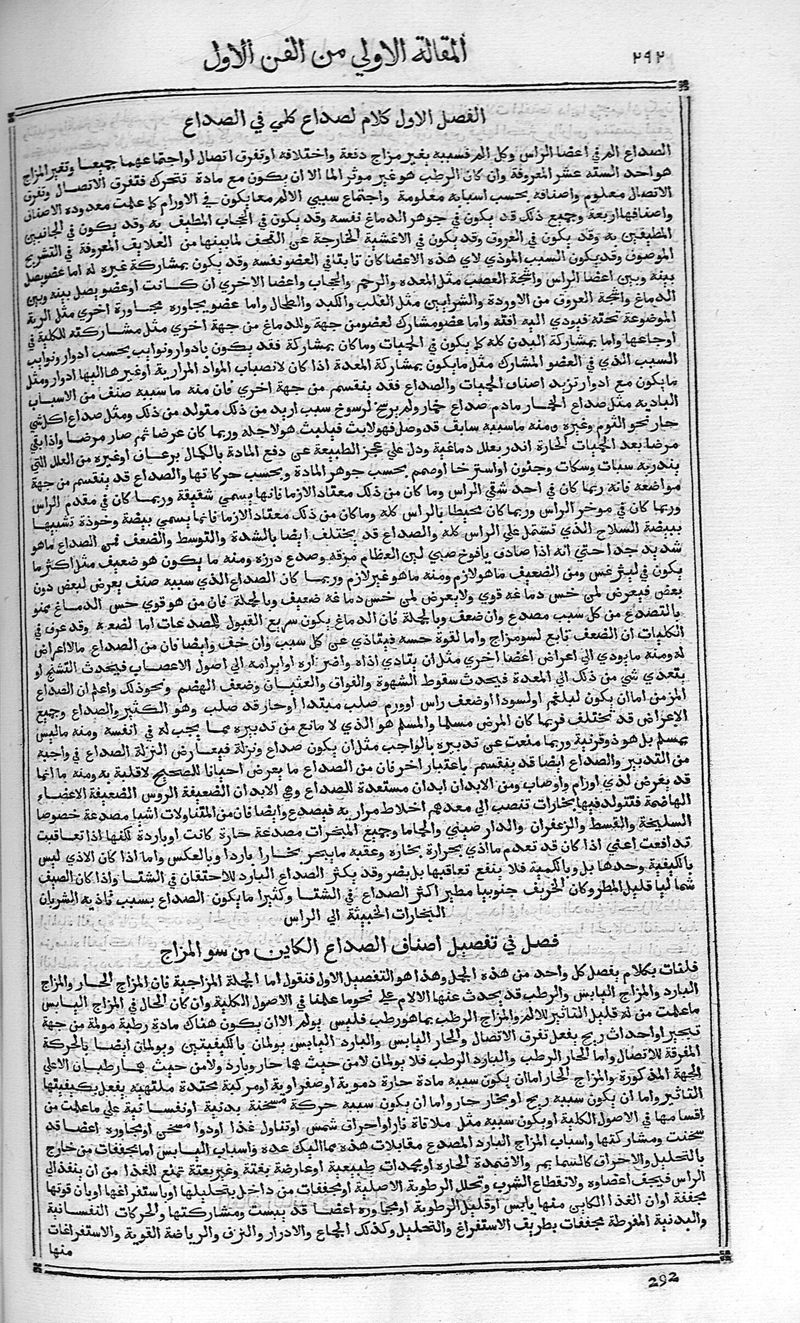 ٢٩٢ المقالة الاولي من الفن الاول
الفصل الاول كلام لصداع كلي في الصداع
الصداع الم في اعضا الراس وكل الم فسببه تغير مزاج دفعة واختلافه او تفرق اتصال او اجتماعهما جميعا وتغير المزاج
هو احد الستة عشر المعروفة وان كان الرطب هو غير موثر الما الا ان يكون مع مادة تتحرك فتفرق الاتصال وتفرق
الاتصال معلوم واصنافه بحسب اسبابه معلومة واجتماع سببي الالم معا يكون في الاورام كما علمت معدودة الاصناف
واصنافها اربعة وجميع ذلك قد يكون في جوهر الدماغ نفسه وقد يكون في الحجاب المطيف به وقد يكون في الجانبين
المطيفين به وقد يكون في العروق وقد يكون في الاغشية الخارجة عن القحف لما بينها من العلايف المعروفة في التشريح
الموصوف وقد يكون السبب الموذي لاي هذه الاعضا كان ثابتا في العضو نفسه وقد يكون بمشاركة غيره له اما عضو يصل
بينه وبين اعضا الراس واشجة العصب مثل المعدة والرحم والحجاب واعضا الاخري ان كانت او عضو يصل بينه وبين
الدماغ واشجة العروق من الاوردة والشرايين مثل القلب والكبد والطحال واما عضو يجاوره مجاورة اخري مثل الرية
الموضوعة تحته فيودي اليه افته واما عضو مشارك لعضو من جهة وللدماغ من جهة اخري مثل مشاركته للكلية في
اوجاعها واما بمشاركة البدن كله كما يكون في الحميات وما كان بمشاركة فقد يكون بادوار ونوايب بحسب ادوار ونوايب
السبب الذي في العضو المشارك مثل ما يكون بمشاركة المعدة اذا كان لانصباب المواد المرارية او غيرها اليها ادوار ومثل
ما يكون مع ادوار تزيد اصناف الحميات والصداع فقد ينقسم من جهة اخري فان منه ما سببه صنف من الاسباب
البادية مثل صداع الخمار مادم صداع خمار ولم يرسخ لرسوخ سبب اريد من ذلك متولد من ذلك ومثل صداع اكل شي
حار نحو الثوم وغيره ومنه ما سببه سابق قد وصل فهو لابث فيلبث هو لاجله وربما كان عرضا ثم صار مرضا واذا بقي
مرضا بعد الحميات الحارة اندر بعلل دماغية ودل علي عجز الطبيعة عن دفع المادة بالكمال برعاف او غيره من العلل التي
بندر به سبات وسكات وجنون او استرخا او صمم بحسب جوهر المادة وبحسب حركاتها والصداع قد ينقسم من جهة
مواضعه فانه ربما كان في احد شقي الراس وما كان من ذلك معتادا لازما فانها يسمي شقيقة وربما كان في مقدم الراس
وربما كان في موخر الراس وربما كان محيطا بالراس كله وما كان من ذلك معتادا لازما فانما يسمي بيضة وخوذة تشبيها
ببيضة السلاح الذي تشتمل علي الراس كله والصداع قد يختلف ايضا بالشدة والتوسط والضعف فمن الصداع ما هو
شديد جدا حتي انه اذا صادف يافوخ صبي لين العظام مزقه وصدع درزه ومنه ما يكون هو ضعيف مثل اكثر ما
يكون في ليثرغس ومن الضعيف ما هو لازم ومنه ما هو غير لازم وربما كان الصداع الذي سببه صنف يعرض لبعض دون
بعض فيعرض لمن حس دماغه قوي ولا يعرض لمن حس دماغه ضعيف وبالجملة فان من هو قوي حس الدماغ ممنو
بالتصدع من كل سبب مصدع وان ضعف وبالجملة فان الدماغ يكون سريع القبول للمصدعات اما لضعفه وقد عرف في
الكليات ان الضعف تابع لسو مزاج واما لقوة حسه فيتاذي عن كل سبب وان خف وايضا فان من الصداع ما لا اعراض
له ومنه ما يودي الي اعراض اعضا اخري مثل ان يتادي اذاه واضراره او ابرامه الي اصول الاعصاب فيحدث التشنج او
يتعدي شي من ذلك الي المعدة فيحدث سقوط الشهوة والفواق والغثيان وضعف الهضم ونحو ذلك واعلم ان الصداع
المزمن اما ان يكون لبلغم او لسودا او ضعف راس او ورم صلب مبتدا او حار قد صلب وهو الكثير والصداع وجميع
الاعراض قد تختلف فربما كان المرض مسلما والمسلم هو الذي لا مانع من تدبيره بما يجب له في نفسه ومنه ما ليس
بمسلم بل هو ذو قرينة وربما منعت عن تدبيره بالواجب مثل ان يكون صداع ونزلة فيعارض النزلة الصداع في واجبه
من التدبير والصداع ايضا قد ينقسم باعتبار اخر فان من الصداع ما يعرض احيانا للصحيح لا قلبة به ومنه ما انما
قد يعرض لذي اورام واوصاب ومن الابدان ابدان مستعدة للصداع وهي الابدان الضعيفة الروس الضعيفة الاعضاء
الهاضمة فتتولد فيها بخارات تنصب الي معدهم اخلاط مرارية فيصدع وايضا فان من المتناولات اشيا مصدعة خصوصا
السليخة والقسط والزعفران والدار صيني والحماما وجميع المبخرات مصدعة حارة كانت او باردة لكنها اذا تعاقبت
تدافعت اعني اذا كان قد تقدم ما اذي بحرارة بخاره وعقبه ما يبخر بخارا باردا وبالعكس واما اذا كان الاذي ليس
بالكيفية وحدها بل وبالكمية فلا ينفع تعاقبها بل يضر وقد يكثر الصداع البارد للاحتقان في الشتا واذا كان الصيف
شماليا قليل المطر وكان الخريف جنوبيا مطيرا كثر الصداع في الشتا وكثيرا ما يكون الصداع بسبب تاذيه الشريان
البخارات الخبيثة الي الراس
فصل في تفصيل اصناف الصداع الكاين من سو المزاج
فلنات بكلام يفصل كل واحد من هذه الجمل وهذا هو التفصيل الاول فنقول اما الجملة المزاجية فان المزاج الحار والمزاج
البارد والمزاج اليابس والرطب قد يحدث عنها الالام علي نحو ما علمنا في الاصول الكلية وان كان الحال في المزاج اليابس
ما علمت من انه قليل التاثير للالم والمزاج الرطب بما هو رطب فليس يولم الا ان يكون هناك مادة رطبة مولمة من جهة
تبخير او احداث ريح يفعل تفرق الاتصال والحار اليابس والبارد اليابس يولمان بالكيفيتين ويولمان ايضا بالحركة
المفرقة للاتصال واما الحار الرطب والبارد الرطب فلا يولمان لا من حيث هما حار وبارد ولا من حيث هما رطبان الا علي
الجهة المذكورة والمزاج الحار اما ان يكون سببه مادة حارة دموية او صفراوية او مركبة محتدة ملتهبة يفعل بكيفيتها
التاثير واما ان يكون سببه ريح او بخار حار واما ان يكون سببه حركة مسخنة بدنية او نفسانية علي ما علمت من
اقسامها في الاصول الكلية او يكون سببه مثل ملاقاة نار او احراق شمس او تناول غذا او دوا مسخن او مجاورة اعضا قد
سخنت ومشاركتها واسباب المزاج البارد المصدع مقابلات هذه مما اليك عده واسباب اليابس اما مجففات من خارج
بالتحليل والاحراق كالسمايم والاضمدة الحارة او مجمدات طبيعية او عارضة بغتة وغير بغتة تمنع للغذا من ان ينفذ الي
الراس فيجف اعضاوه ولانقطاع الشرب وتحلل الرطوبة الاصلية او مجففات من داخل بتحليلها او باستفراغها او بان قوتها
مجففة او ان الغذا الكاين منها يابس او قليل الرطوبة او مجاورة اعضا قد يبست ومشاركتها والحركات النفسانية
والبدنية المفرطة مجففات بطريق الاستفراغ والتحليل وكذلك الجماع والادرار والنزف والرياضة القوية والاستفراغات
منها
292